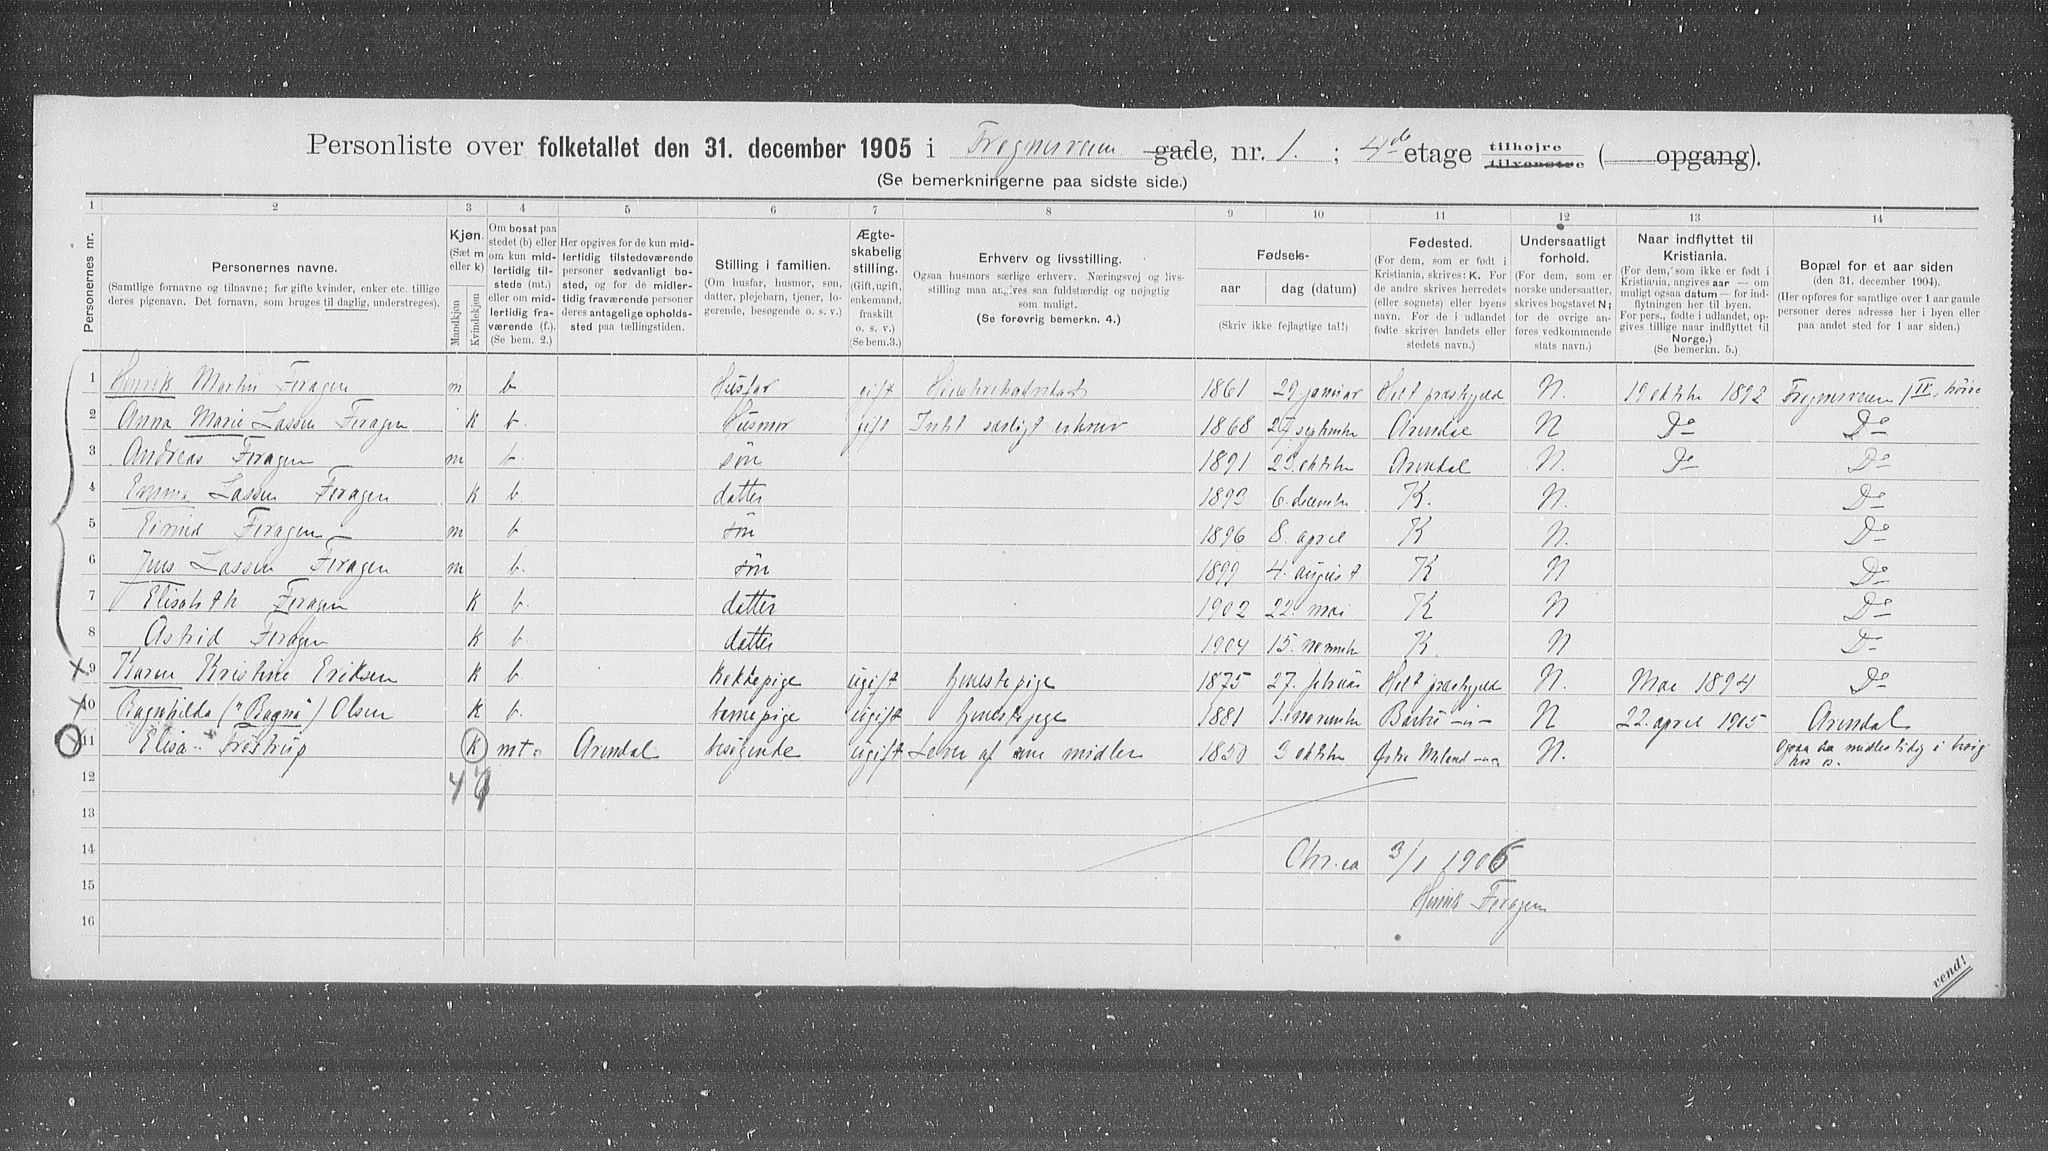 Personliste over folketallet den 31. december 1905 i Frognerveien gade, nr. 1. ; 4de etage tilhøjre tilvenstre ( opgang).
(Se bemerkningerne paa sidste side.)
1 2 3 4 5 6 7 8 9 10 11 12 13 14
Personernes nr.
Personernes navne.
(Samtlige fornavne og tilnavne; for gifte kvinder, enker etc. tillige
deres pigenavn. Det fornavn, som bruges til daglig, understreges).
Kjøn.
(Sæt m
eller k)
Mandkjøn
Kvindekjøn
Om bosat paa
stedet (b) eller
om kun mid-
lertidig til-
stede (mt.)
eller om mid-
lertidig fra-
værende (f.).
(Se bem. 2.)
Her opgives for de kun mid-
lertidig tilstedeværende
personer sedvanligt bo-
sted, og for de midler-
tidig fraværende personer
deres antagelige opholds-
sted paa tællingstiden.
Stilling i familien.
(Om husfar, husmor, søn,
datter, plejebarn, tjener, lo-
gerende, besøgende o. s. v.)
Ægte-
skabelig
stilling.
(Gift, ugift,
enkemand,
fraskilt
o. s. v.)
(Se bem.3.)
Erhverv og livsstilling.
Ogsaa husmors særlige erhverv. Næringsvej og livs-
stilling maa angives saa fuldstændig og nøjagtig
som muligt.
(Se forøvrig bemerkn. 4.)
Fødsels-
aar dag (datum)
(Skriv ikke fejlagtige tal!)
Fødested.
(For dem, som er født i
Kristiania, skrives: K. For
de andre skrives herredets
(eller sognets) eller byens
navn. For de i udlandet
fødte skrives landets eller
stedets navn.)
Undersaatligt
forhold.
(For dem, som er
norske undersaatter,
skrives bogstavet N;
for de øvrige an-
føres vedkommende
stats navn.)
Naar indflyttet til
Kristiania.
(For dem, som ikke er født i
Kristiania, angives aar — om
muligt ogsaa datum — for ind-
flytningen her til byen.
For pers., fødte i udlandet, op-
gives tillige naar indflyttet til
Norge.)
(Se bemerkn. 5.)
Bopæl for et aar siden
(den 31. december 1904).
(Her opføres for samtlige over 1 aar gamle
personer deres adresse her i byen eller
paa andet sted for 1 aar siden.)
1 Henrik Martin Feragen m b. Husfar gift 1861 29 januar Holt præstegjeld N. 19 oktbr 1892 Frognerveien 1 IV, høire
2 Anna Marie Lassen Feragen k b. Husmor gift Intet særligt erhverv 1868 27 septembr Arendal N Do Do
3 Andreas Feragen m b. søn 1891 23. oktbr Arendal N. Do Do
4 Emma Lassen Feragen k b. datter 1893 6. decembr K. N. Do
5 Eivind Feragen m b søn 1896 8. april K N. Do
6 Jens Lassen Feragen m b. søn 1899 4. august K N Do
7 Elisabeth Feragen k b. datter 1902 22. mai K N Do
8 Astrid Feragen k b. datter 1904 15. novembr K. N Do
9 Karen Kristine Eriksen k b. kokkepige ugift tjenestepige 1875 27. februar Holt præstegjeld N. Mai 1894 Do
10 Ragnhilda ("Ragna") Olsen k b. barnepige ugift tjenestepige 1881 1. novembr Barbu -"- N 22. april 1905 Arendal
11 Elisa Frostrup k mt. Arendal besøgende ugift Lever af sine midler 1850 3 oktbr Østre Moland -"- N. Ogsaa da midlertidig i besøg hos os.
12 4 7
13
14 Chr.ia 3/1 1906
15 Henrik Feragen
16
vend!